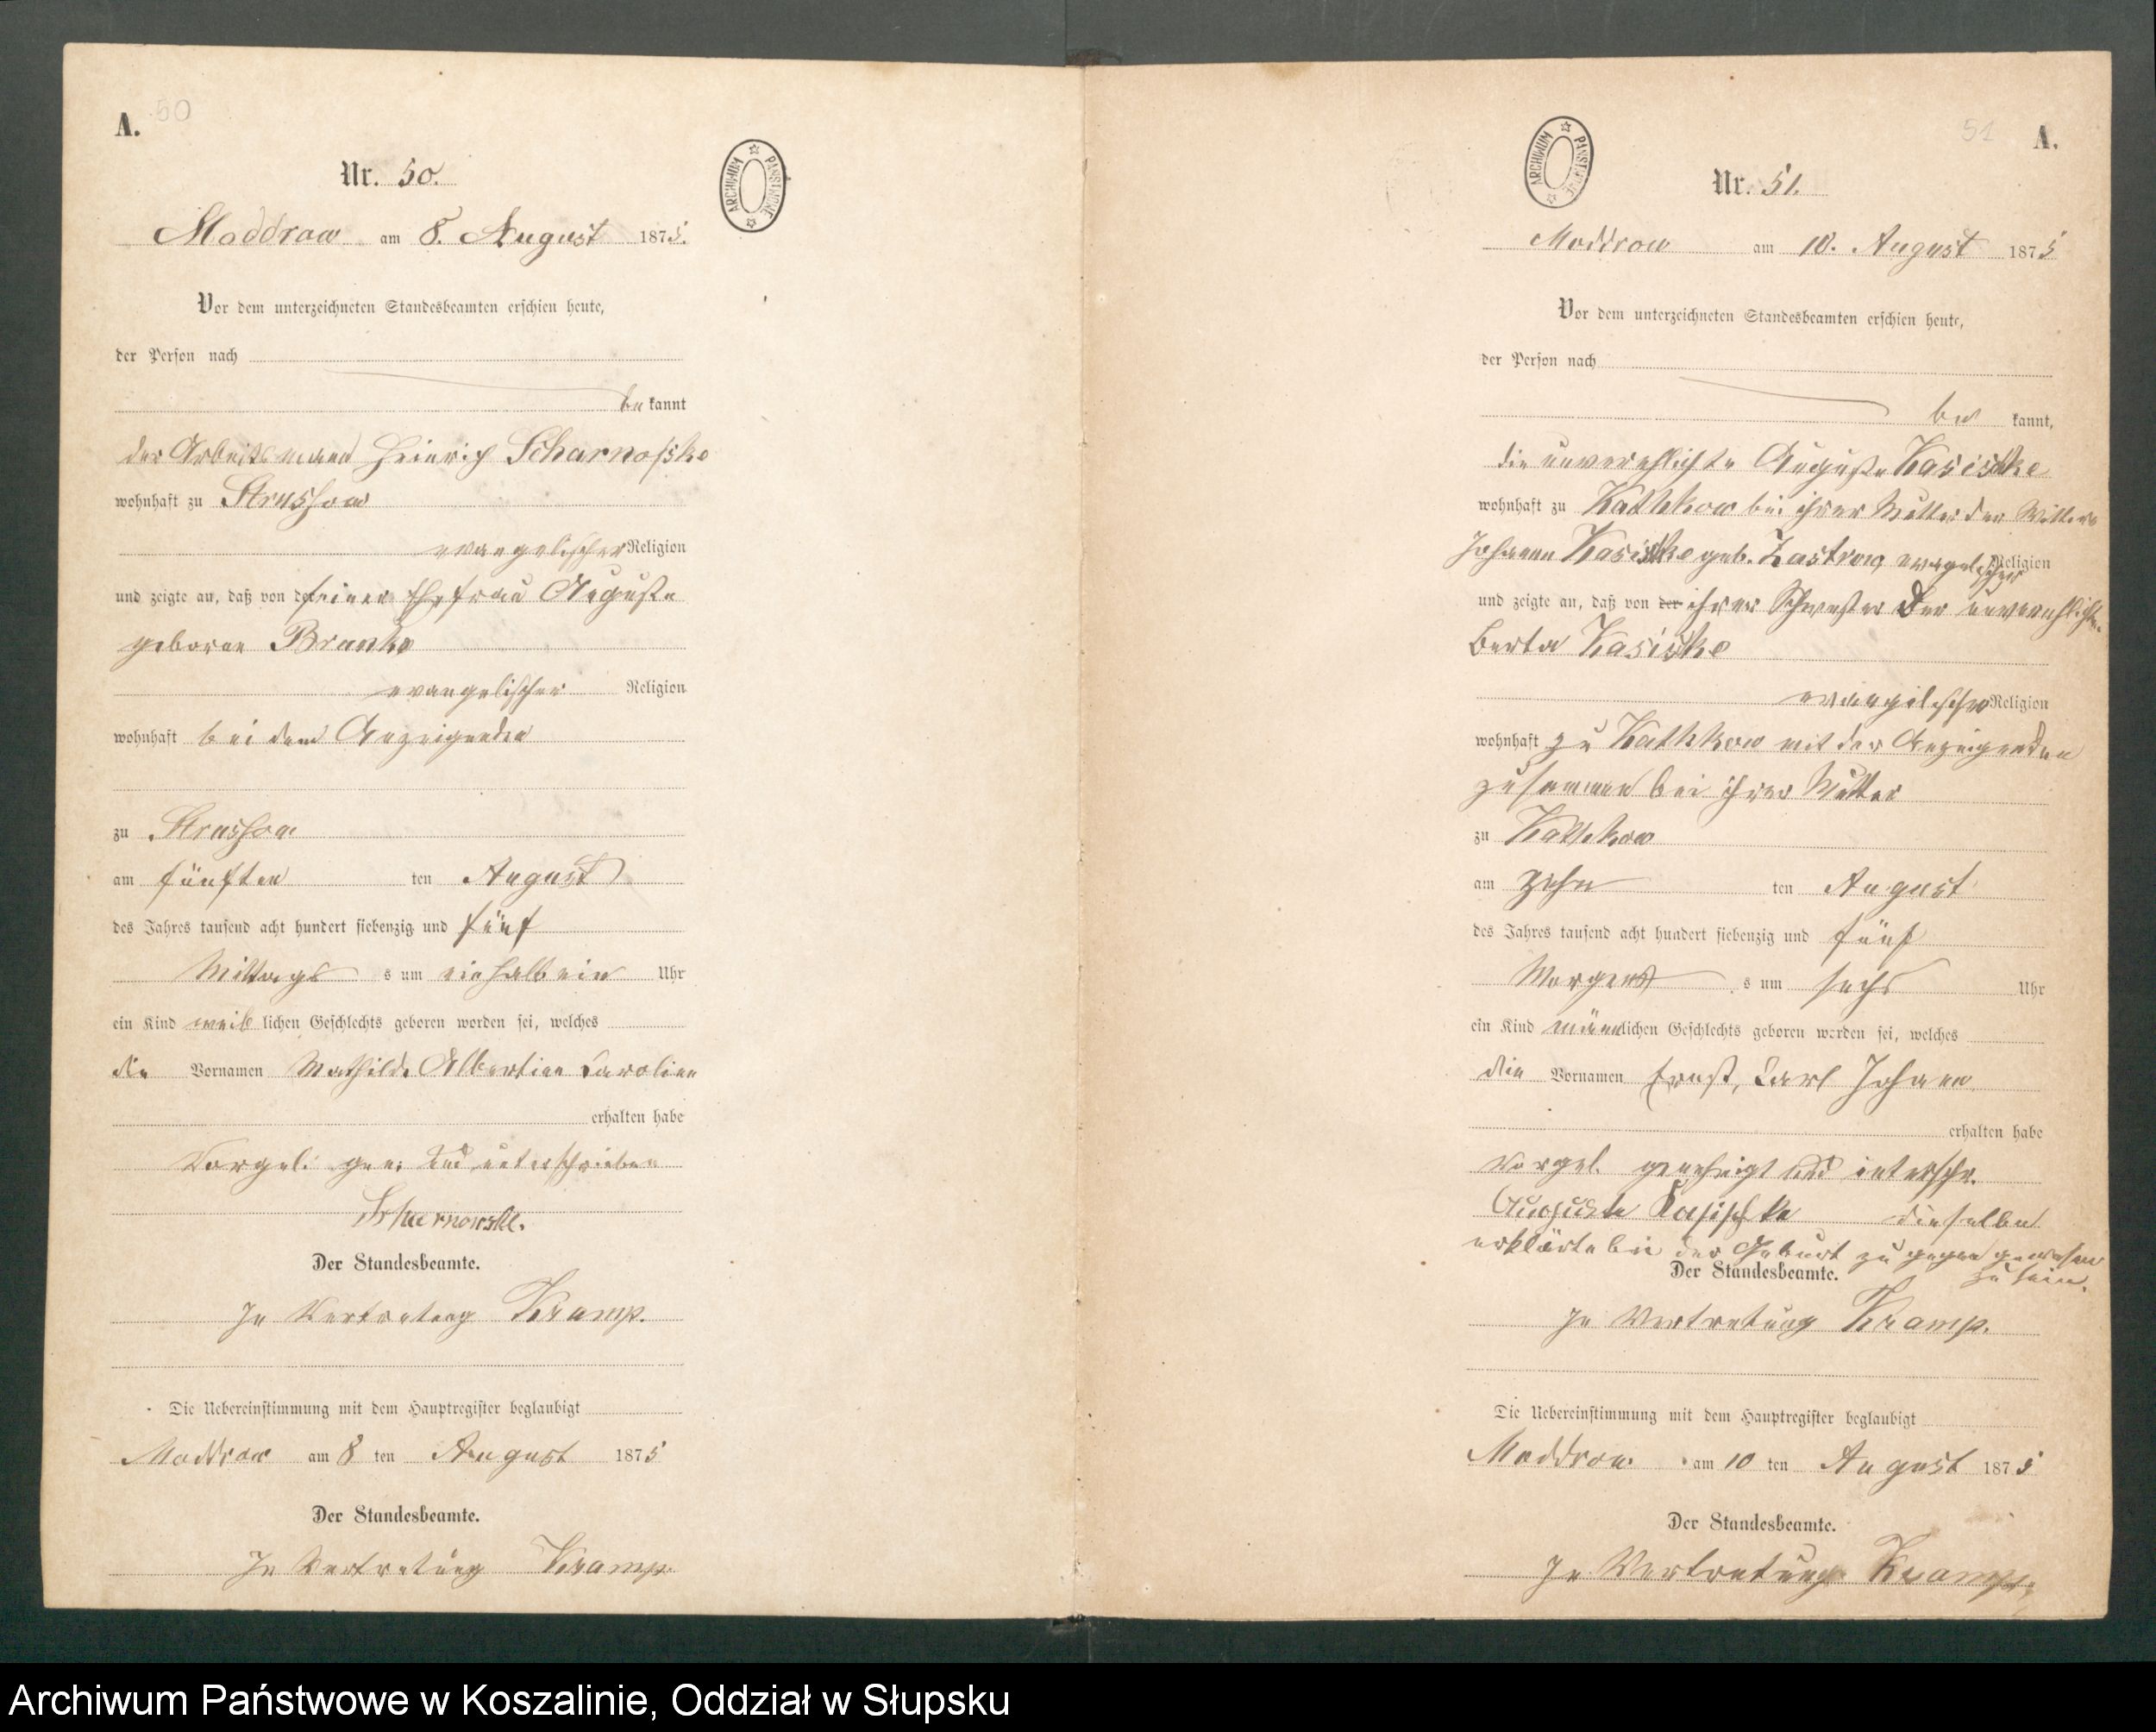 A. 50
Nr. 50.
ARCHIWUM PAŃSTWOWE
Moddrow am 8. August 1875.
Vor dem unterzeichneten Standesbeamten erschien heute,
der Person nach
be kannt
der Arbeitsmann Heinrich Scharnofske
wohnhaft zu Strussow
evangelischer Religion
und zeigte an, daß von der seiner Ehefrau Auguste
geborne Brunke
evangelischer Religion
wohnhaft bei dem Anzeigenden
zu Strussow
am fünften ten August
des Jahres tausend acht hundert siebenzig und fünf
Mittags s um ein halb ein Uhr
ein Kind weib lichen Geschlechts geboren worden sei, welches
die Vornamen Mathilde Albertine Caroline
erhalten habe
Vorgel. gen. und unterschrieben
Scharnowske.
Der Standesbeamte.
In Vertretung Kramp.
Die Uebereinstimmung mit dem Hauptregister beglaubigt
Moddrow am 8 ten August 1875
Der Standesbeamte.
In Vertretung Kramp.
51 A.
Nr. 51.
ARCHIWUM PAŃSTWOWE
Moddrow am 10. August 1875
Vor dem unterzeichneten Standesbeamten erschien heute,
der Person nach
be kannt,
die unverehlichte Auguste Kasischke
wohnhaft zu Kathkow bei ihrer Mutter der Wittwe
Johann Kasischke geb. Zastrow, evangelischer Religion
und zeigte an, daß von der ihrer Schwester der unverehlichten
Berta Kasischke
evangelischer Religion
wohnhaft zu Kathkow mit der Anzeigenden
zusammen bei ihrer Mutter
zu Kathkow
am zehn ten August
des Jahres tausend acht hundert siebenzig und fünf
Morgens s um sechs Uhr
ein Kind männlichen Geschlechts geboren worden sei, welches
die Vornamen Ernst, Carl Johann
erhalten habe
Vorgel. genehmigt und unterschr.
Auguste Kasischke dieselbe
erklärte bei der Geburt zugegen gewesen
zu sein.
Der Standesbeamte.
In Vertretung Kramp.
Die Uebereinstimmung mit dem Hauptregister beglaubigt
Moddrow am 10 ten August 1875
Der Standesbeamte.
In Vertretung Kramp.
Archiwum Państwowe w Koszalinie, Oddział w Słupsku